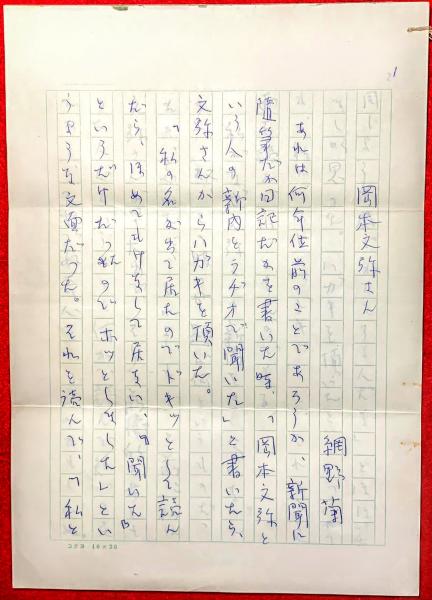 1
岡本文弥さん
網野菊
あれは何年位前のことであろうか、新聞に
随筆だか日記だかを書いた時、「岡本文弥と
いう人の新内をラヂオで聞いた」と書いたら、
文弥さんからハガキを頂いた。
「私の名が出て居たのでドキッとして読ん
だら、ほめてもけなしても居ない、『聞いた』
というだけだったのでホッとしました」とい
うような文面だった。それを読んで、「私と
コクヨ 10×20